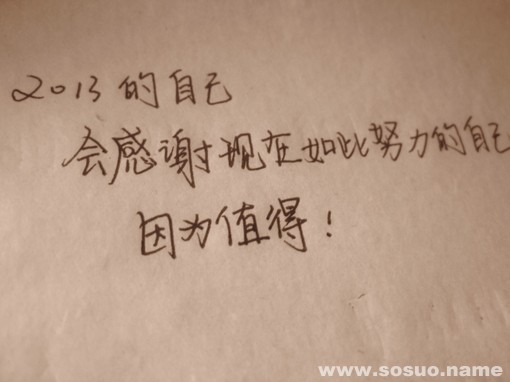 2013的自己
会感谢现在如此努力的自己
因为值得!
www.sosuo.name